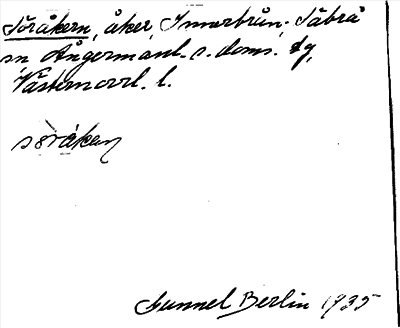 Söråkern, åker, Innerbrån. Säbrå
sn Ångermanl. s. doms. tg,
Västernorrl. l.
söråken
Gunnel Berlin 1935